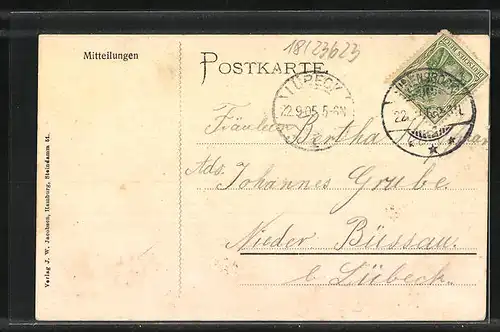 18123623
Mitteilungen
POSTKARTE.
LÜBECK
22.9.05.5-6N
22.
Fräulein Bertha
Ads. Johannes Grube.
Nieder Büssau.
b. Lübeck.
Verlag J. W. Jacobsen, Hamburg, Steindamm 51.